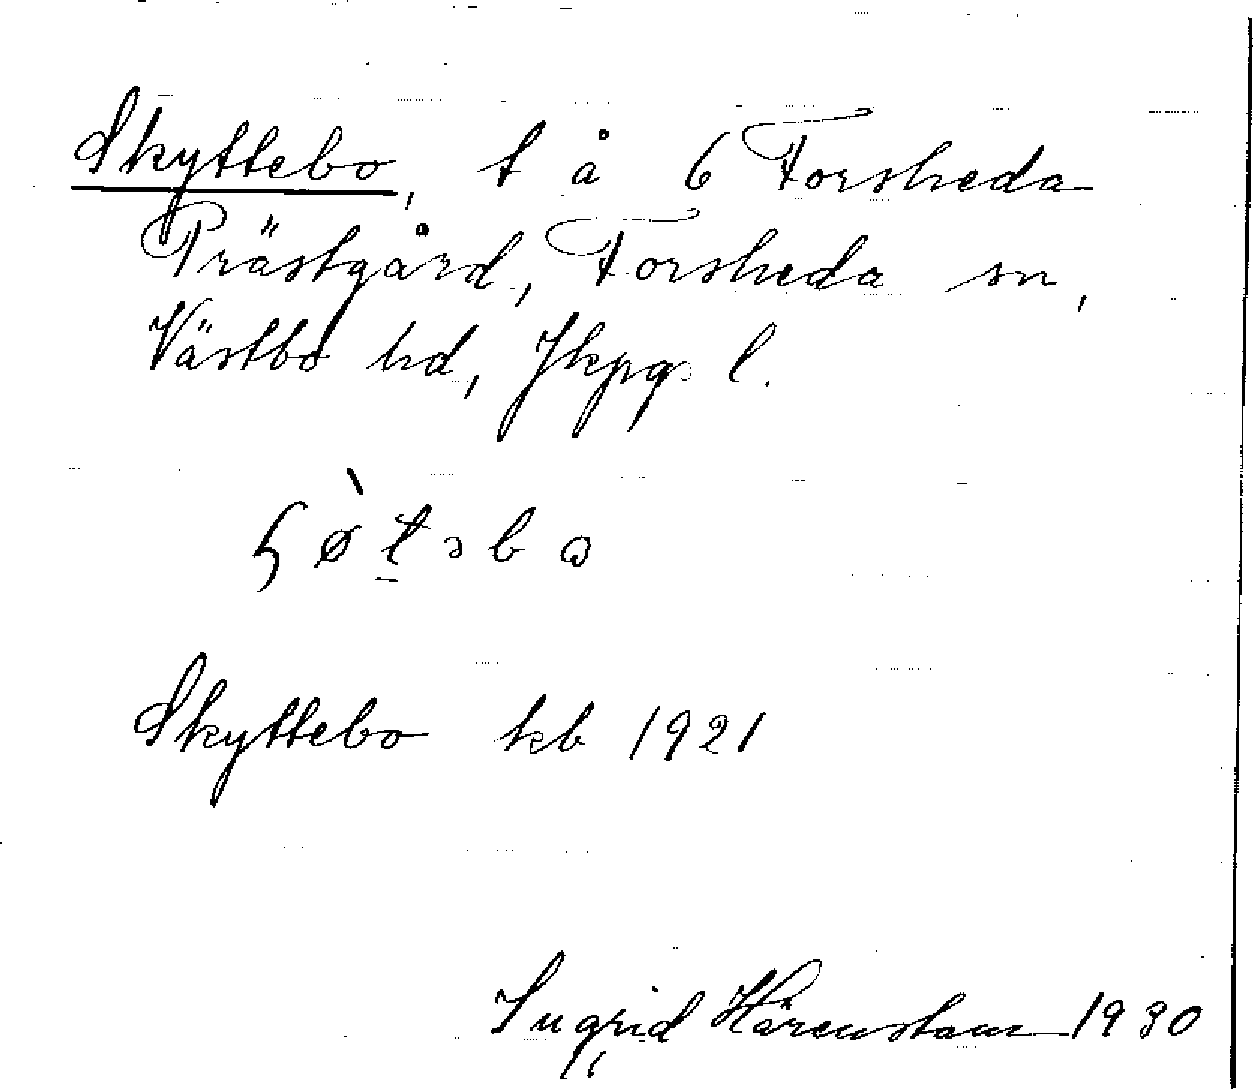 Skyttebo, t å 6 Forsheda
Prästgård, Forsheda sn,
Västbo hd, Jkpgs l.
Skyttebo kb 1921
Ingrid Hårenstam 1930